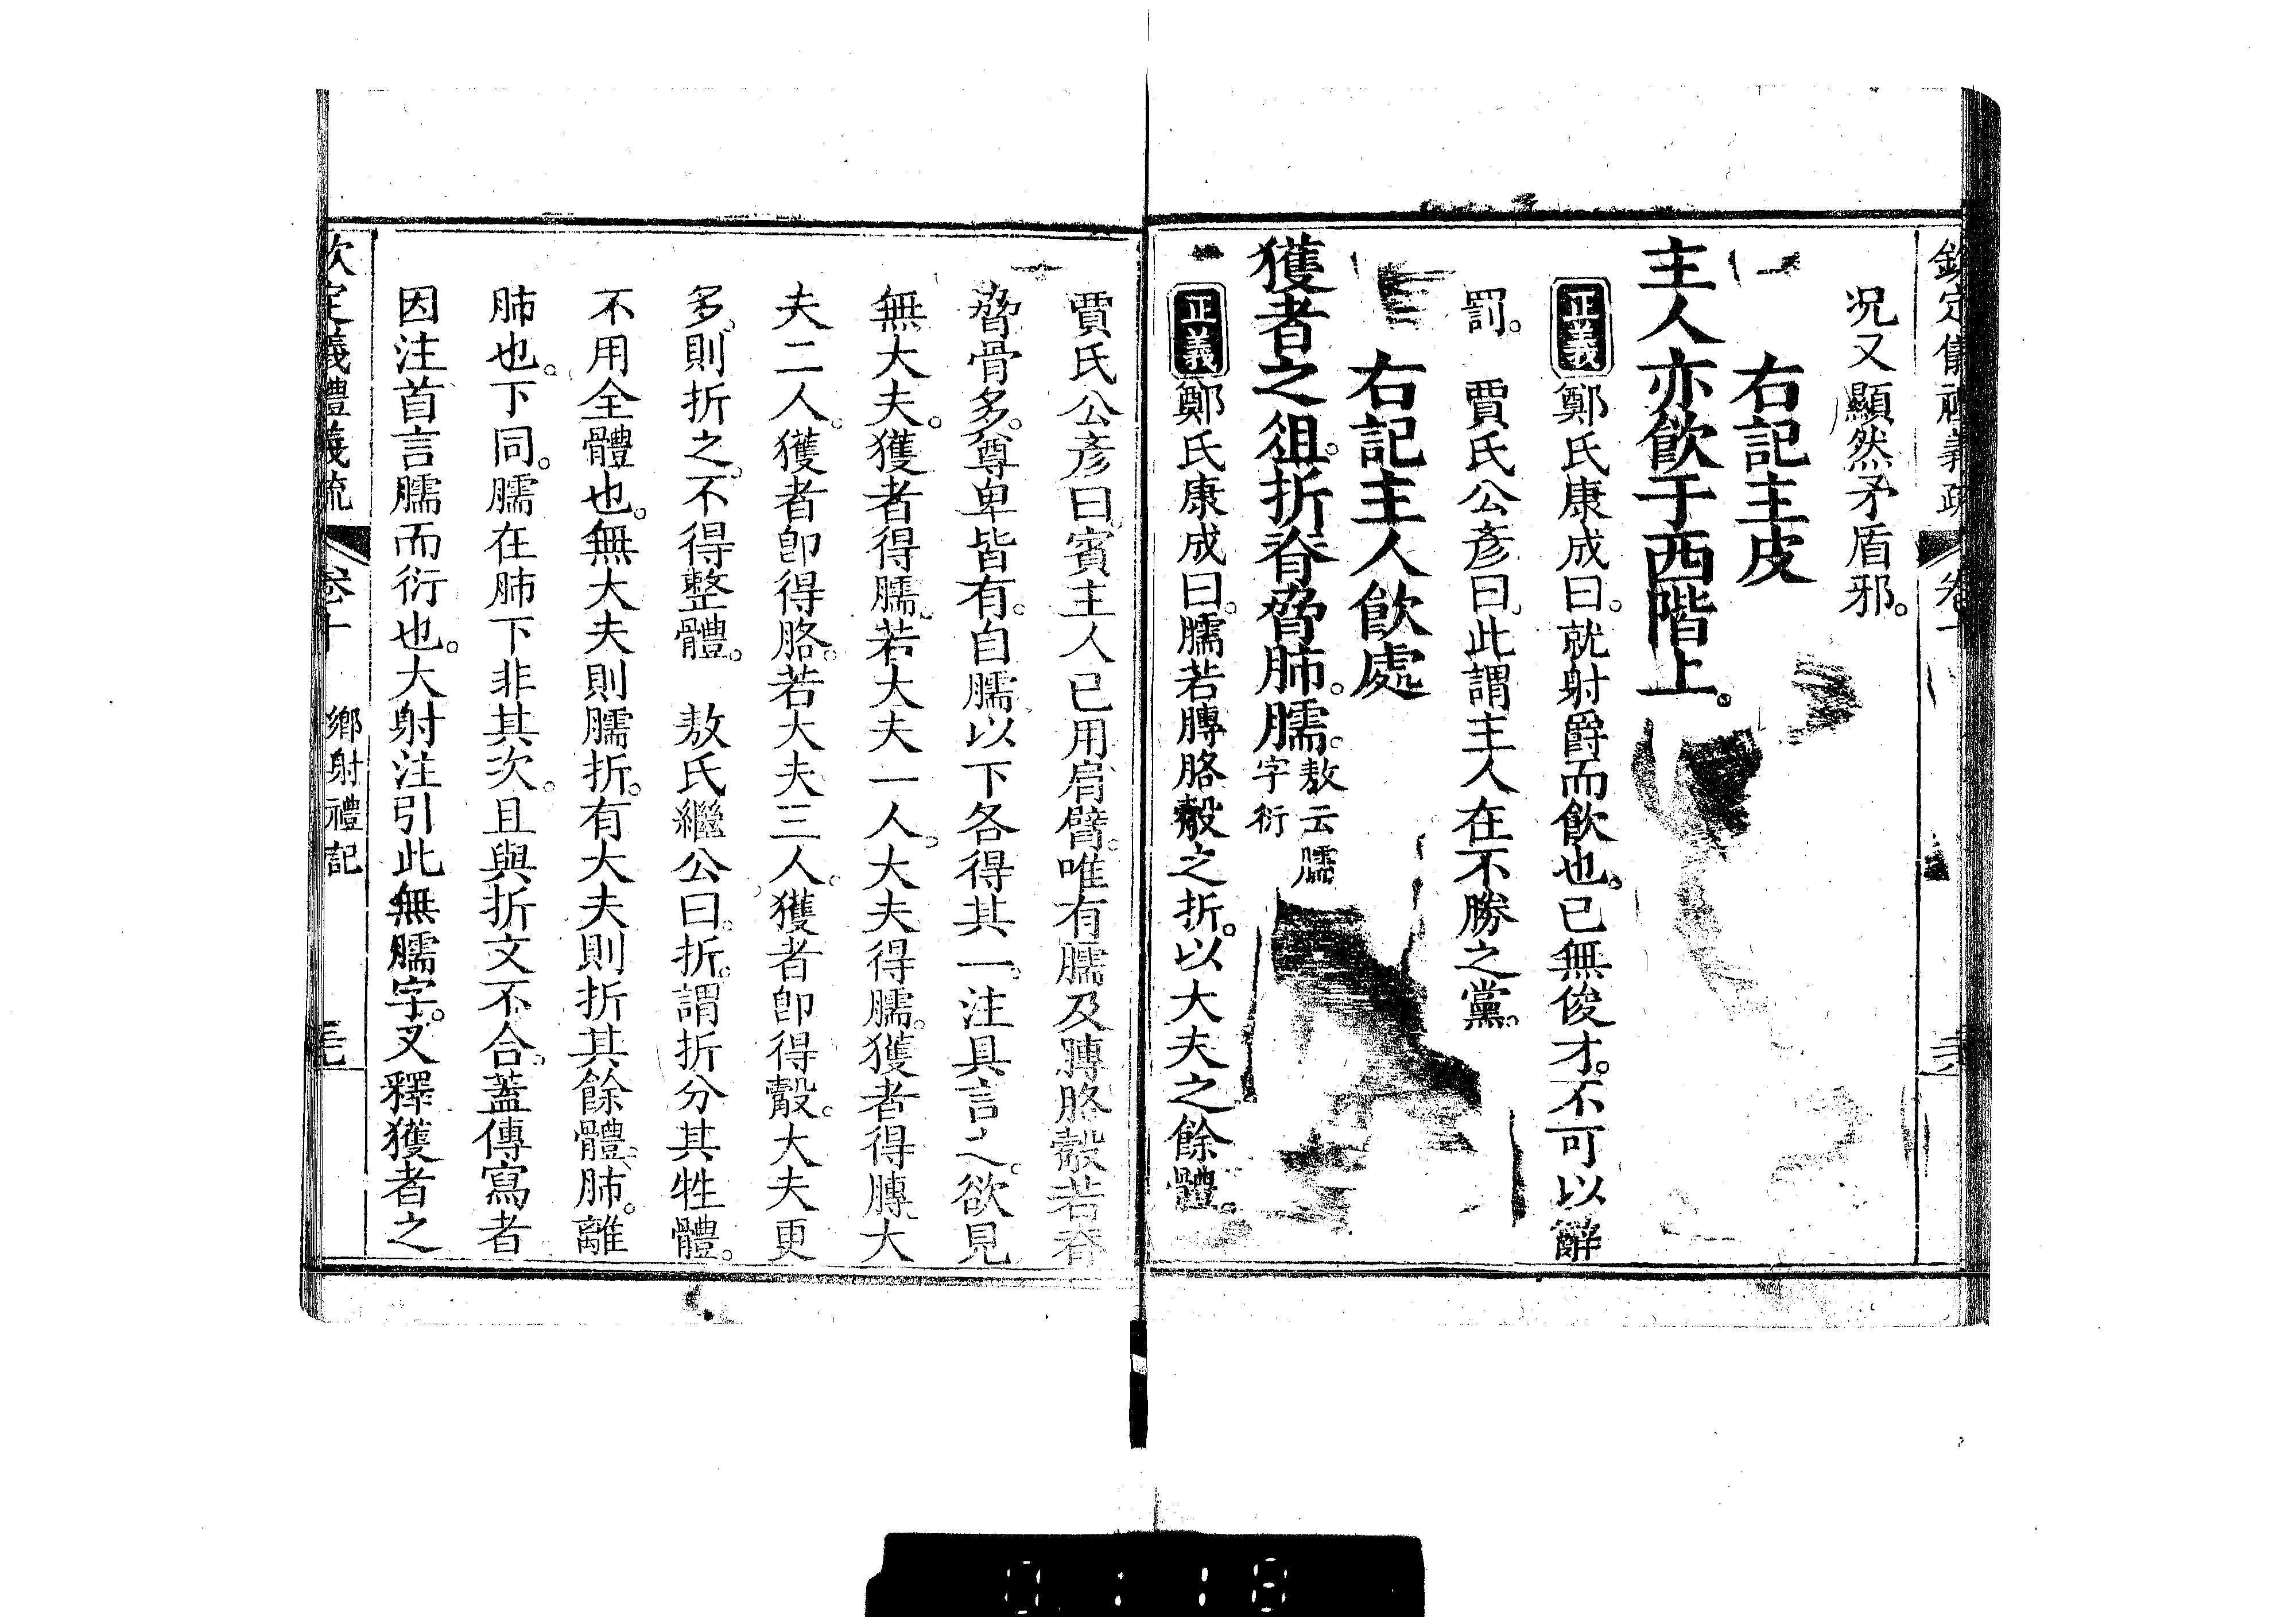 况又顯然矛盾邪。
右記主皮
主人亦飮于西階上。
正義鄭氏康成曰。就射爵而飮也。已無俊才。不可以辭
罰。賈氏公彥曰。此謂主人在不勝之黨。
右記主人飮處
獲者之俎。折脊脅肺。臑。敖云臑
字衍
正義鄭氏康成曰。臑若膊胳觳之折。以大夫之餘體。
賈氏公彥曰。賓主人已用肩臂。唯有臑及膊胳觳若脊
脅骨多。尊卑皆有。自臑以下各得其一。注具言之。欲見
無大夫。獲者得臑。若大夫一人。大夫得臑。獲者得膊。大
夫二人。獲者卽得胳。若大夫三人。獲者卽得觳。大夫更
多。則折之。不得整體。敖氏繼公曰。折。謂折分其牲體。
不用全體也。無大夫則臑折。有大夫則折其餘體。肺。離
肺也。下同。臑在肺下非其次。且與折文不合。蓋傳寫者
因注首言臑而衍也。大射注引此無臑字。又釋獲者之
鄉射禮記